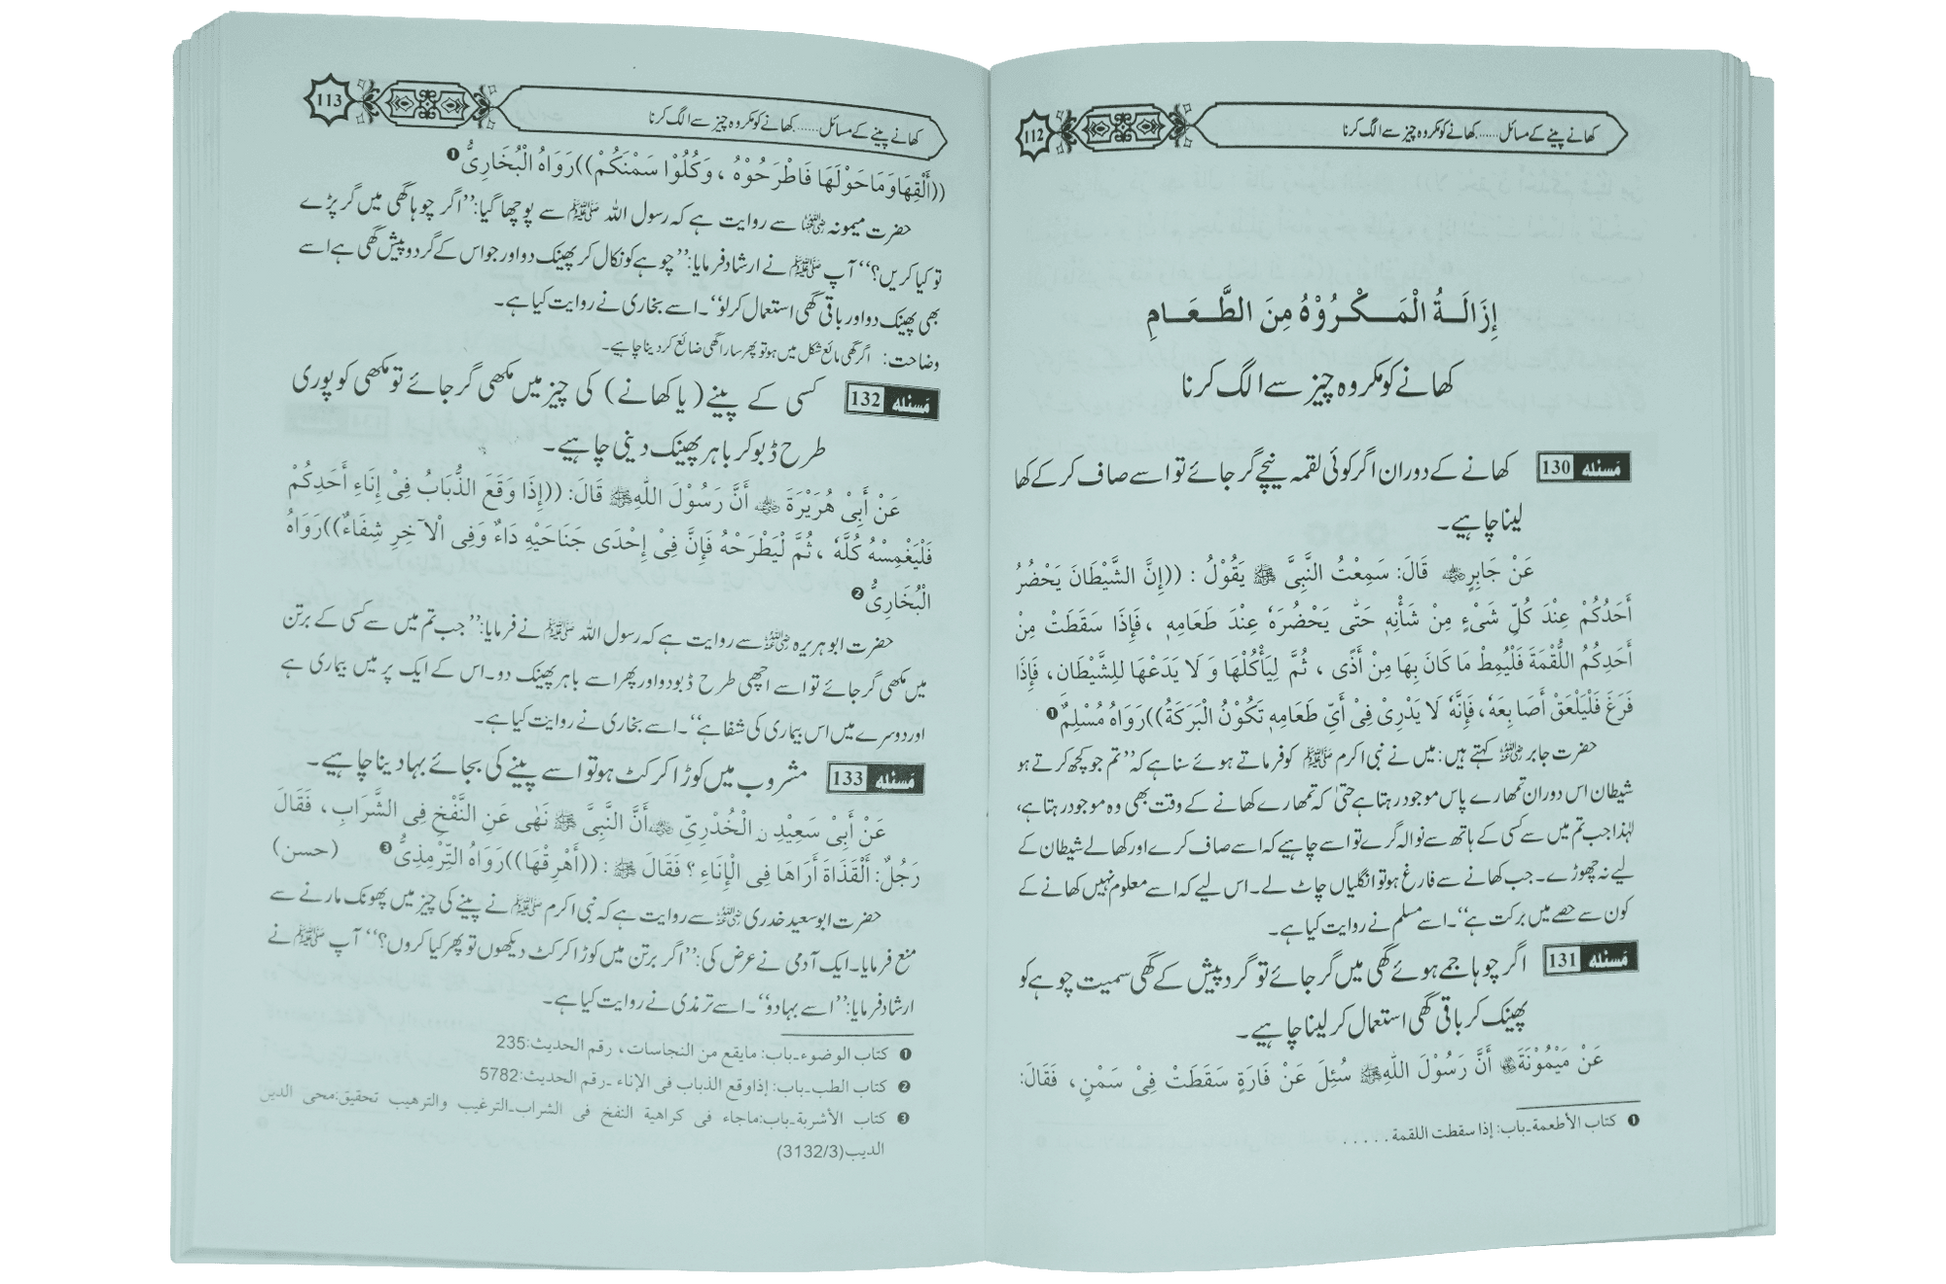 کھانے پینے کے مسائل......کھانے کو مکروہ چیز سے الگ کرنا
112
إِزَالَـةُ الْمَـكْـرُوْهُ مِنَ الطَّـعَـامِ
کھانے کو مکروہ چیز سے الگ کرنا
مَسئله 130 کھانے کے دوران اگر کوئی لقمہ نیچے گر جائے تو اسے صاف کر کے کھا
لینا چاہیے۔
عَنْ جَابِرٍ ﷛ قَالَ: سَمِعْتُ النَّبِيَّ ﷺ يَقُوْلُ : ((إِنَّ الشَّيْطَانَ يَحْضُرُ
أَحَدُكُمْ عِنْدَ كُلِّ شَيْءٍ مِنْ شَأْنِهٖ حَتّٰى يَحْضُرَهٗ عِنْدَ طَعَامِهٖ ، فَإِذَا سَقَطَتْ مِنْ
أَحَدِكُمُ اللُّقْمَةَ فَلْيُمِطْ مَا كَانَ بِهَا مِنْ أَذًى ، ثُمَّ لِيَأْكُلْهَا وَ لَا يَدَعْهَا لِلشَّيْطَانِ، فَإِذَا
فَرَغَ فَلْيَلْعَقْ أَصَابِعَهٗ، فَإِنَّهٗ لَا يَدْرِيْ فِيْ أَيِّ طَعَامِهٖ تَكُوْنُ الْبَرَكَةُ))رَوَاهُ مُسْلِمٌ❶
حضرت جابر ﷛ کہتے ہیں: میں نے نبی اکرم ﷺ کو فرماتے ہوئے سنا ہے کہ ’’تم جو کچھ کرتے ہو
شیطان اس دوران تمھارے پاس موجود رہتا ہے حتیٰ کہ تمھارے کھانے کے وقت بھی وہ موجود رہتا ہے،
لہٰذا جب تم میں سے کسی کے ہاتھ سے نوالہ گرے تو اسے چاہیے کہ اسے صاف کرے اور کھا لے شیطان کے
لیے نہ چھوڑے۔ جب کھانے سے فارغ ہو تو انگلیاں چاٹ لے۔ اس لیے کہ اسے معلوم نہیں کھانے کے
کون سے حصے میں برکت ہے‘‘۔ اسے مسلم نے روایت کیا ہے۔
مَسئله 131 اگر چوہا جمے ہوئے گھی میں گر جائے تو گرد پیش کے گھی سمیت چوہے کو
پھینک کر باقی گھی استعمال کر لینا چاہیے۔
عَنْ مَيْمُوْنَةَ أَنَّ رَسُوْلَ اللّٰهِ ﷺ سُئِلَ عَنْ فَارَةٍ سَقَطَتْ فِيْ سَمْنٍ، فَقَالَ:
❶ كتاب الأطعمة۔باب: إذا سقطت اللقمة . . . . .
کھانے پینے کے مسائل......کھانے کو مکروہ چیز سے الگ کرنا
113
((أَلْقِهَا وَمَا حَوْلَهَا فَاطْرَحُوْهُ ، وَكُلُوْا سَمْنَكُمْ))رَوَاهُ الْبُخَارِيُّ❶
حضرت میمونہ ﷞ سے روایت ہے کہ رسول اللہ ﷺ سے پوچھا گیا:’’اگر چوہا گھی میں گر پڑے
تو کیا کریں؟‘‘ آپ ﷺ نے ارشاد فرمایا:’’چوہے کو نکال کر پھینک دو اور جو اس کے گرد و پیش گھی ہے اسے
بھی پھینک دو اور باقی گھی استعمال کر لو‘‘۔ اسے بخاری نے روایت کیا ہے۔
وضاحت: اگر گھی مائع شکل میں ہو تو پھر سارا گھی ضائع کر دینا چاہیے۔
مَسئله 132 کسی کے پینے (یا کھانے) کی چیز میں مکھی گر جائے تو مکھی کو پوری
طرح ڈبو کر باہر پھینک دینی چاہیے۔
عَنْ أَبِيْ هُرَيْرَةَ ﷛ أَنَّ رَسُوْلَ اللّٰهِ ﷺ قَالَ: ((إِذَا وَقَعَ الذُّبَابُ فِيْ إِنَاءِ أَحَدِكُمْ
فَلْيَغْمِسْهُ كُلَّهٗ ، ثُمَّ لْيَطْرَحْهُ فَإِنَّ فِيْ إِحْدَى جَنَاحَيْهِ دَاءٌ وَفِي الْآخِرِ شِفَاءٌ))رَوَاهُ
الْبُخَارِيُّ❷
حضرت ابو ہریرہ ﷛ سے روایت ہے کہ رسول اللہ ﷺ نے فرمایا:’’جب تم میں سے کسی کے برتن
میں مکھی گر جائے تو اسے اچھی طرح ڈبو دو اور پھر اسے باہر پھینک دو۔ اس کے ایک پر میں بیماری ہے
اور دوسرے میں اس بیماری کی شفا ہے‘‘۔ اسے بخاری نے روایت کیا ہے۔
مَسئله 133 مشروب میں کوڑا کرکٹ ہو تو اسے پینے کی بجائے بہا دینا چاہیے۔
عَنْ أَبِيْ سَعِيْدِ نِ الْخُدْرِيِّ ﷛ أَنَّ النَّبِيَّ ﷺ نَهٰى عَنِ النَّفْخِ فِي الشَّرَابِ ، فَقَالَ
رَجُلٌ: اَلْقَذَاةَ أَرَاهَا فِي الْإِنَاءِ ؟ فَقَالَ ﷺ : ((أَهْرِقْهَا))رَوَاهُ التِّرْمِذِيُّ❸ (حسن)
حضرت ابو سعید خدری ﷛ سے روایت ہے کہ نبی اکرم ﷺ نے پینے کی چیز میں پھونک مارنے سے
منع فرمایا۔ ایک آدمی نے عرض کی:’’اگر برتن میں کوڑا کرکٹ دیکھوں تو پھر کیا کروں؟‘‘ آپ ﷺ نے
ارشاد فرمایا:’’اسے بہا دو‘‘۔ اسے ترمذی نے روایت کیا ہے۔
❶ كتاب الوضوء۔باب: مايقع من النجاسات، رقم الحديث:235
❷ كتاب الطب۔باب: إذاوقع الذباب فى الإناء ۔رقم الحديث:5782
❸ كتاب الأشربة۔باب:ماجاء فى كراهية النفخ فى الشراب۔الترغيب والترهيب تحقيق:محى الدين
الديب(3132/3)